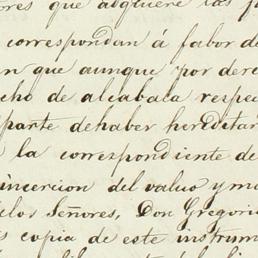 ores que adquiere las p
correspondan á fabor de
n que aunque por dere
cho de alcabala respec
parte de haber heredetar
a la correspondiente de
incercion del valuo y mo
delos Señores, Don Gregorio
s copia de este instrum